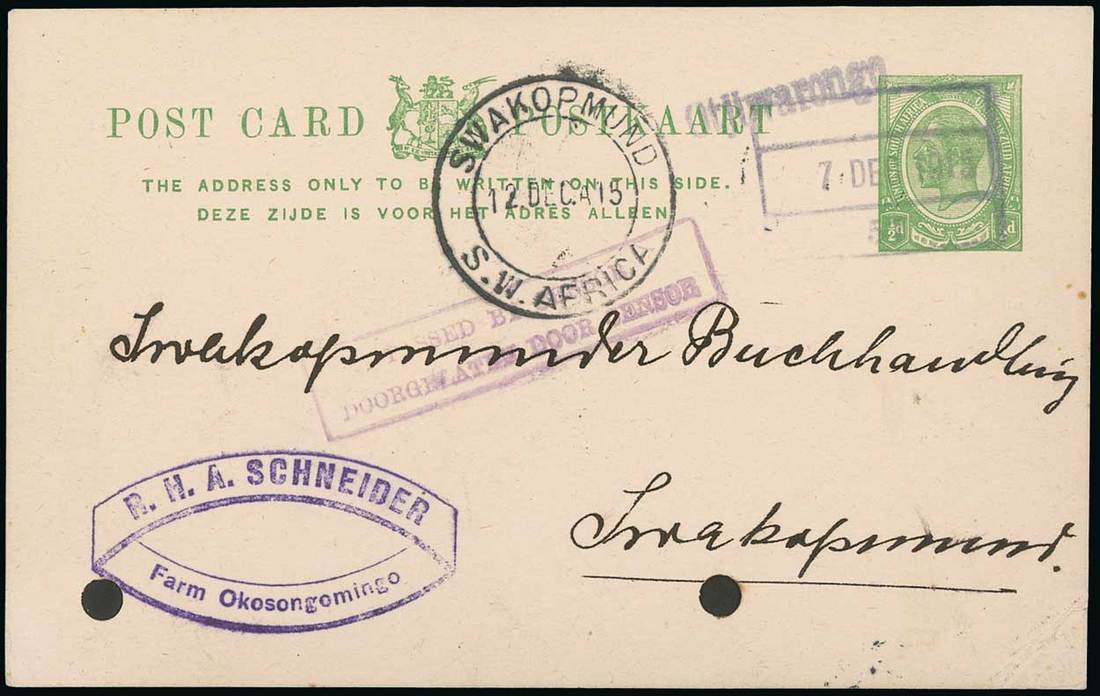 POST CARD POSTKAART
THE ADDRESS ONLY TO BE WRITTEN ON THIS SIDE.
DEZE ZIJDE IS VOOR HET ADRES ALLEEN.
SWAKOPMUND
12.DEC.A15
S.W. AFRICA
Otjiwarongo
7. DE 1915
½d d
PASSED BY
DOORGELATEN DOOR CENSOR
Swakopmunder Buchhandling
Swakopmund.
R. H. A. SCHNEIDER
Farm Okosongomingo